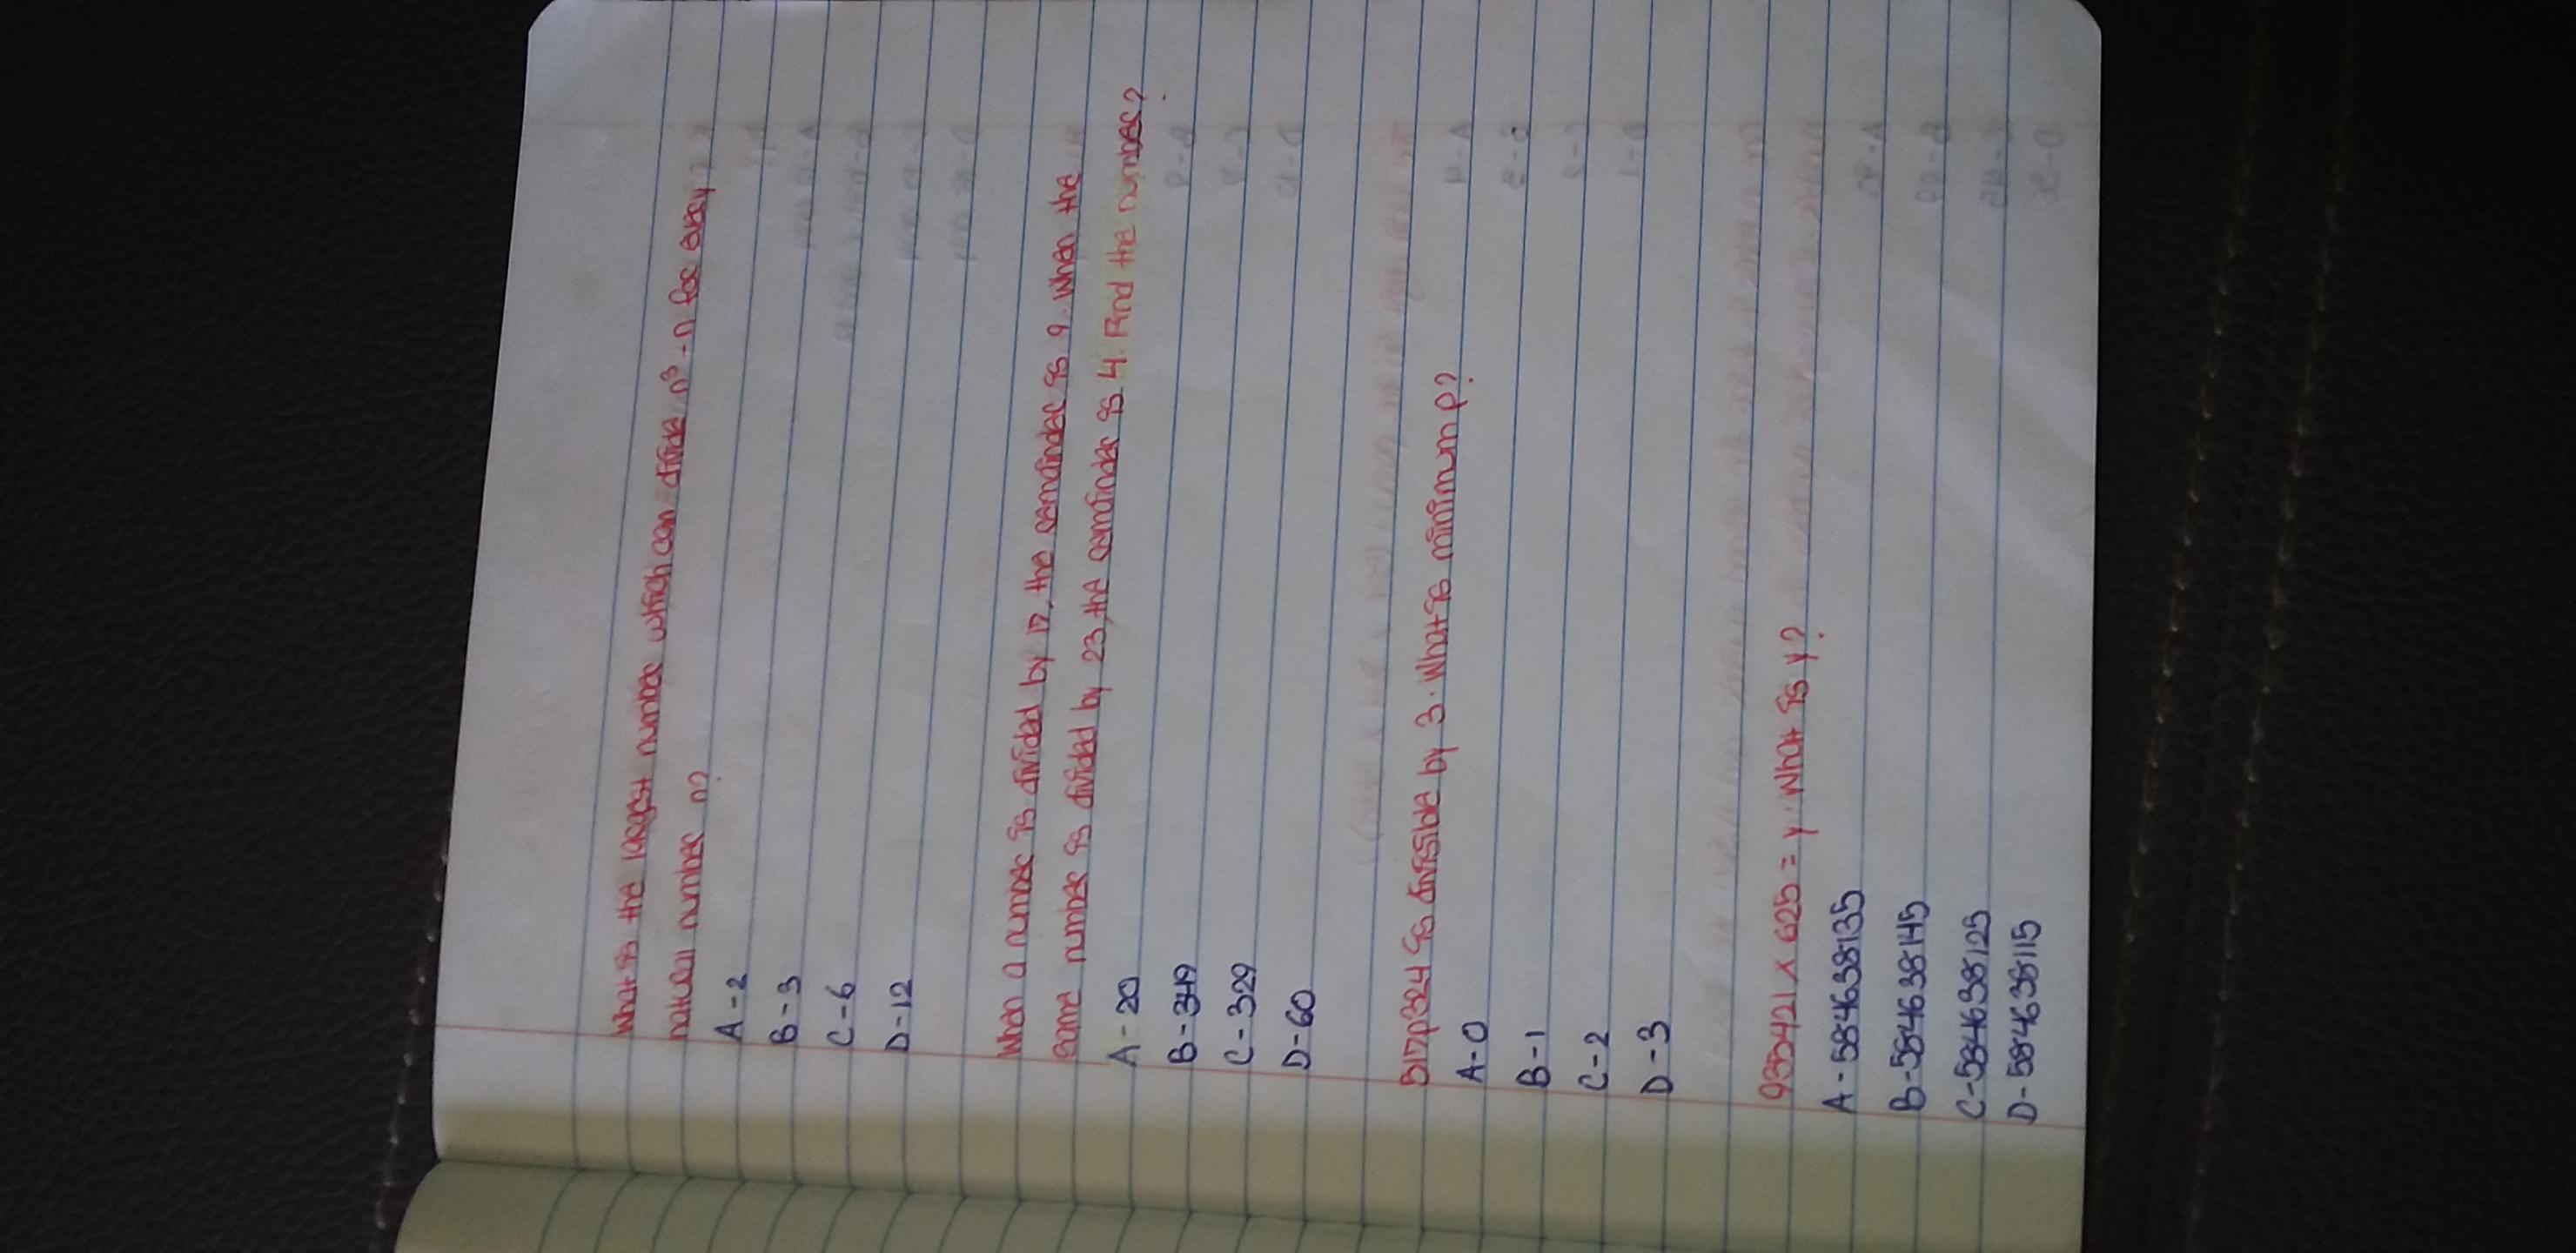 What is the largest number which can divide n³-n for every
natural number n?
A-2
B-3
C-6
D-12
When a number is divided by 17, the remainder is 9. When the
same number is divided by 23, the remainder is 4. Find the number?
A-20
B-349
C-329
D-60
517p324 is divisible by 3. What is minimum p?
A-0
B-1
C-2
D-3
935421 x 625 = y. What is y?
A-584638135
B-584638145
C-584638125
D-584638115